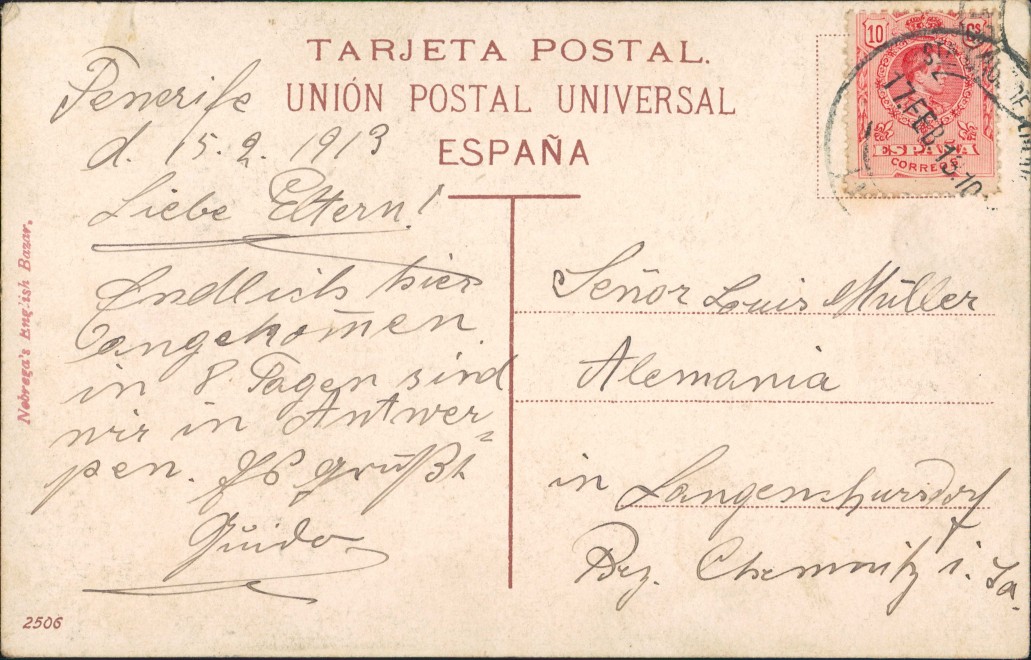 TARJETA POSTAL.
UNIÓN POSTAL UNIVERSAL
ESPAÑA
Tenerife
d. 15. 2. 1913
Liebe Eltern!
Endlich hier
angekom̄en
in 8 Tagen sind
wir in Antwer=
pen. Es grüßt
Guido
Señor Louis Müller
Alemania
in Langenchursdorf
Bez. Chemnitz i. Sa.
10 Cs
ESPAÑA
CORREOS
17.FEB.13.10
Nobrega's English Bazar.
2506